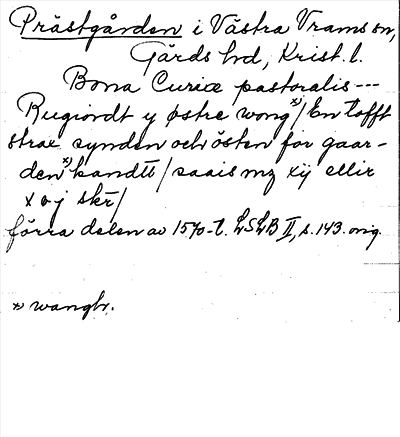 Prästgården i Västra Vrams sn,
Gärds hd, Krist. l.
Bona Curiæ pastoralis ---
Rugiordt y østre wong x)/ En tofft
strax synden och östen for gaar-
den x) kandtt / saais mz xij ellir
x vj skr̄/
förra delen av 1570-t. LSLB II, s. 143. orig.
x) wangbr.